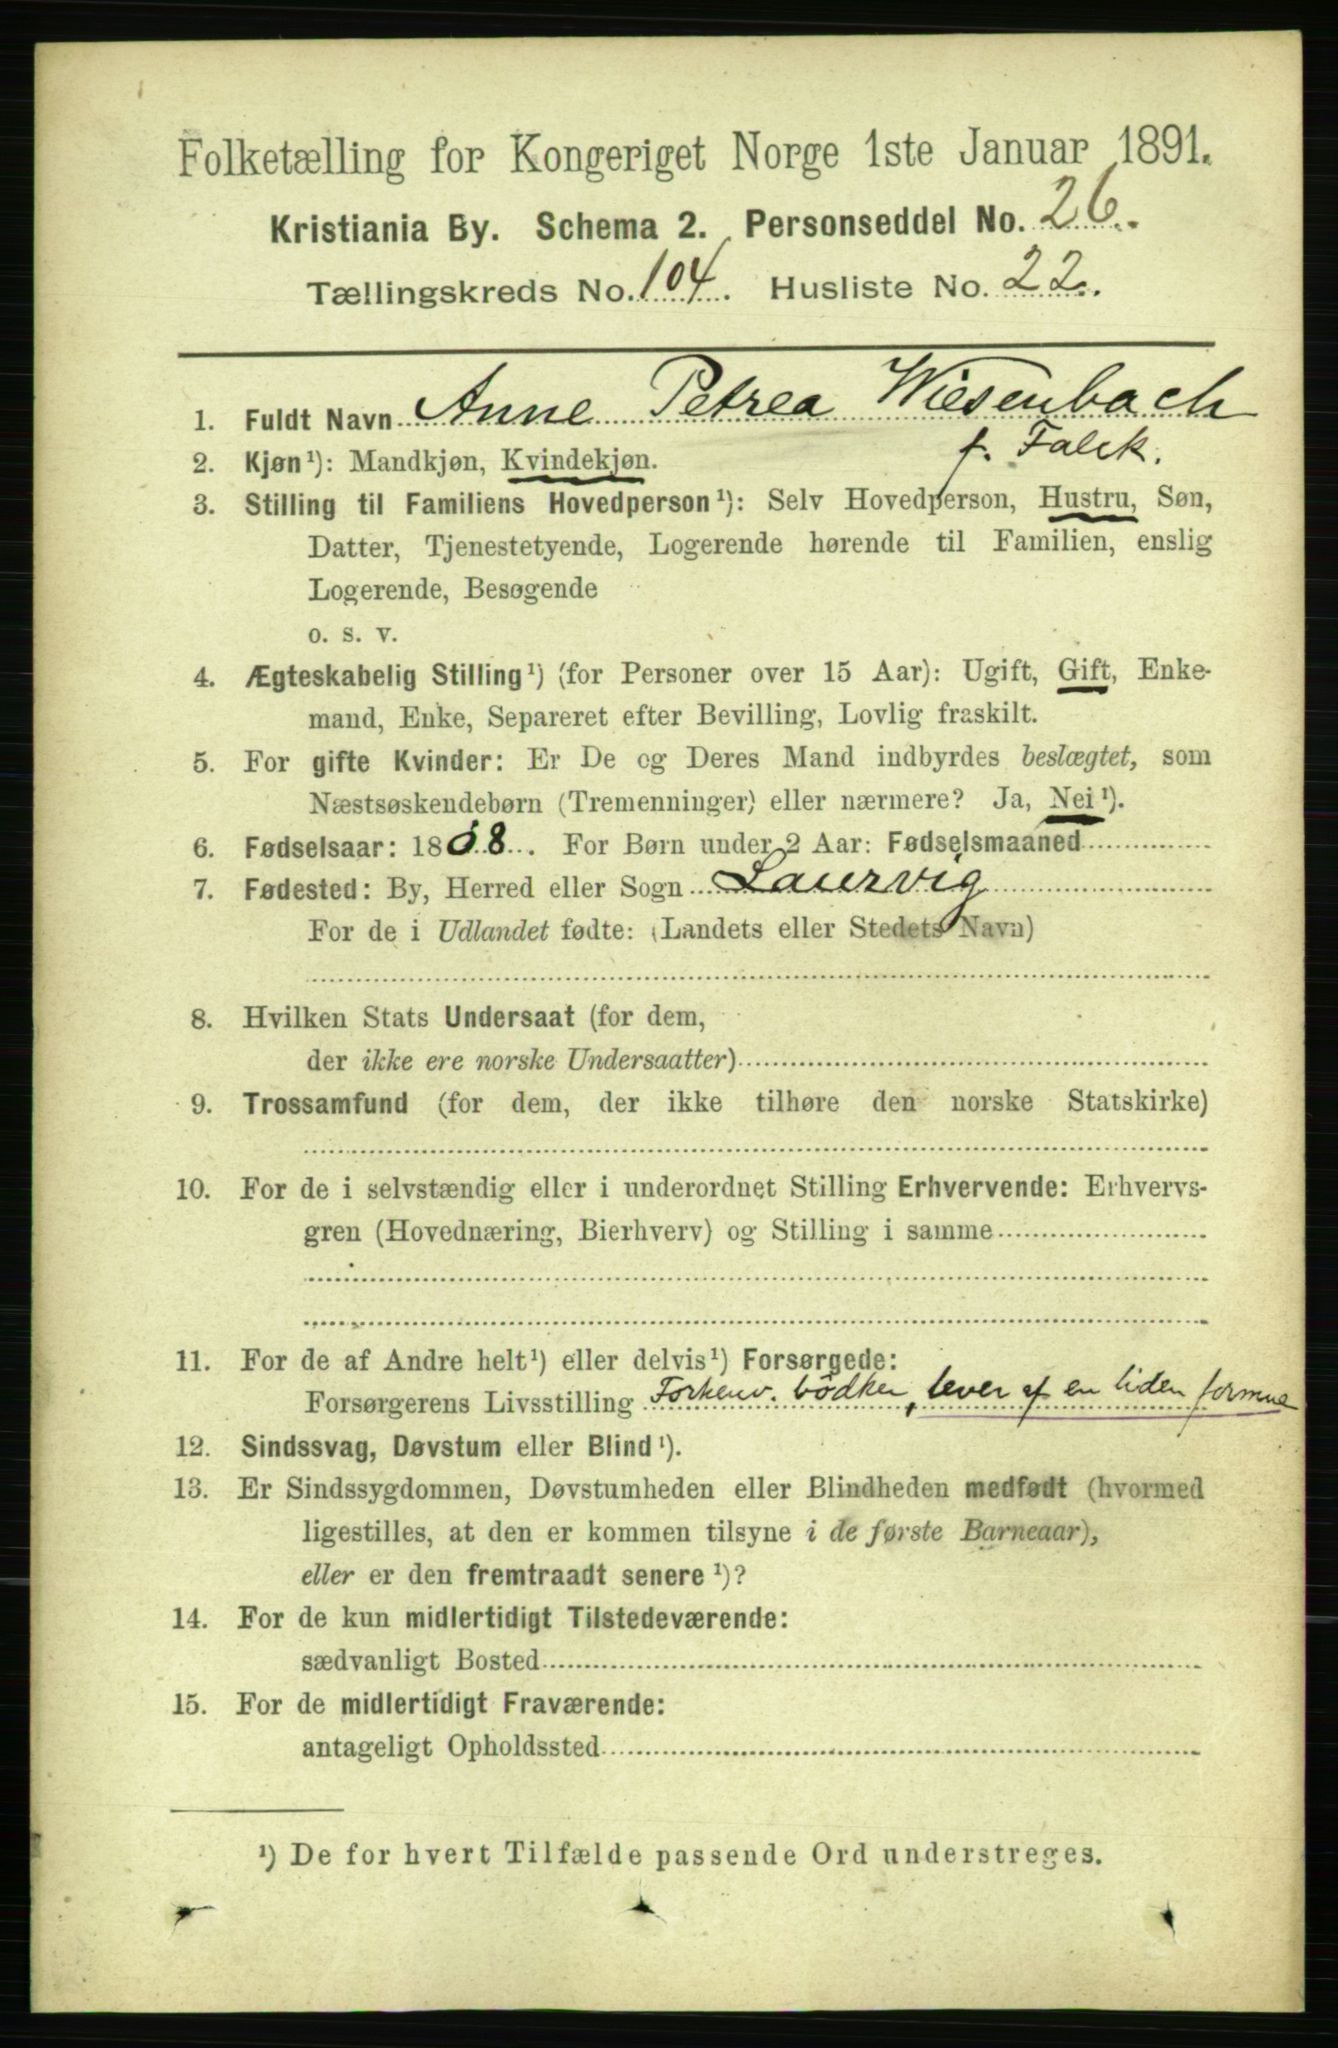 Folketælling for Kongeriget Norge 1ste Januar 1891.
Kristiania By. Schema 2. Personseddel No. 26.
Tællingskreds No. 104. Husliste No. 22.
1. Fuldt Navn Anne Petrea Wiesenbach
f. Falck.
2. Kjøn¹): Mandkjøn, Kvindekjøn.
3. Stilling til Familiens Hovedperson¹): Selv Hovedperson, Hustru, Søn,
Datter, Tjenestetyende, Logerende hørende til Familien, enslig
Logerende, Besøgende
o. s. v.
4. Ægteskabelig Stilling¹) (for Personer over 15 Aar): Ugift, Gift, Enke-
mand, Enke, Separeret efter Bevilling, Lovlig fraskilt.
5. For gifte Kvinder: Er De og Deres Mand indbyrdes beslægtet, som
Næstsøskendebørn (Tremenninger) eller nærmere? Ja, Nei¹).
6. Fødselsaar: 18 8. For Børn under 2 Aar: Fødselsmaaned
7. Fødested: By, Herred eller Sogn Laurvig
For de i Udlandet fødte: (Landets eller Stedets Navn)
8. Hvilken Stats Undersaat (for dem,
der ikke ere norske Undersaatter)
9. Trossamfund (for dem, der ikke tilhøre den norske Statskirke)
10. For de i selvstændig eller i underordnet Stilling Erhvervende: Erhvervs-
gren (Hovednæring, Bierhverv) og Stilling i samme
11. For de af Andre helt¹) eller delvis¹) Forsørgede:
Forsørgerens Livsstilling bödker, lever af en liden formue
12. Sindssvag, Døvstum eller Blind¹).
13. Er Sindssygdommen, Døvstumheden eller Blindheden medfødt (hvormed
ligestilles, at den er kommen tilsyne i de første Barneaar),
eller er den fremtraadt senere¹)?
14. For de kun midlertidigt Tilstedeværende:
sædvanligt Bosted
15. For de midlertidigt Fraværende:
antageligt Opholdssted
¹) De for hvert Tilfælde passende Ord understreges.